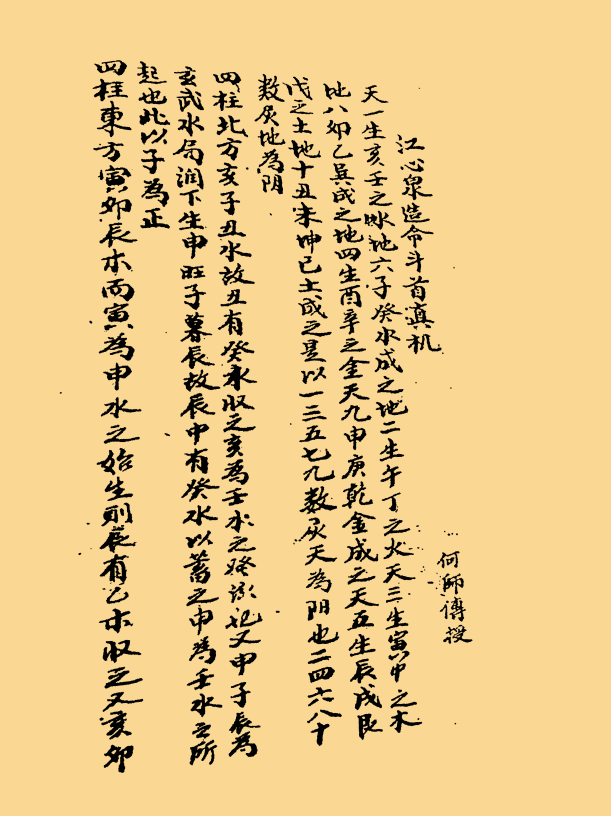 何師傳授
江心泉造命斗首真机
天一生亥壬之水地六子癸水成之地二生午丁之火天三生寅甲之木
地八卯乙巽成之地四生酉辛之金天九申庚乾金成之天五生辰戌艮
戊之土地十丑未坤己土成之是以一三五七九數屬天為陽也二四六八十
數屬地為阴
四柱北方亥子丑水故丑有癸水收之亥為壬水之又申子辰為
玄武水局润下生申旺子暮辰故辰中有癸水以蓄之申為壬水之所
起也此以子為正
四柱東方寅卯辰木而寅為甲水之始生則辰有乙木收之又亥卯